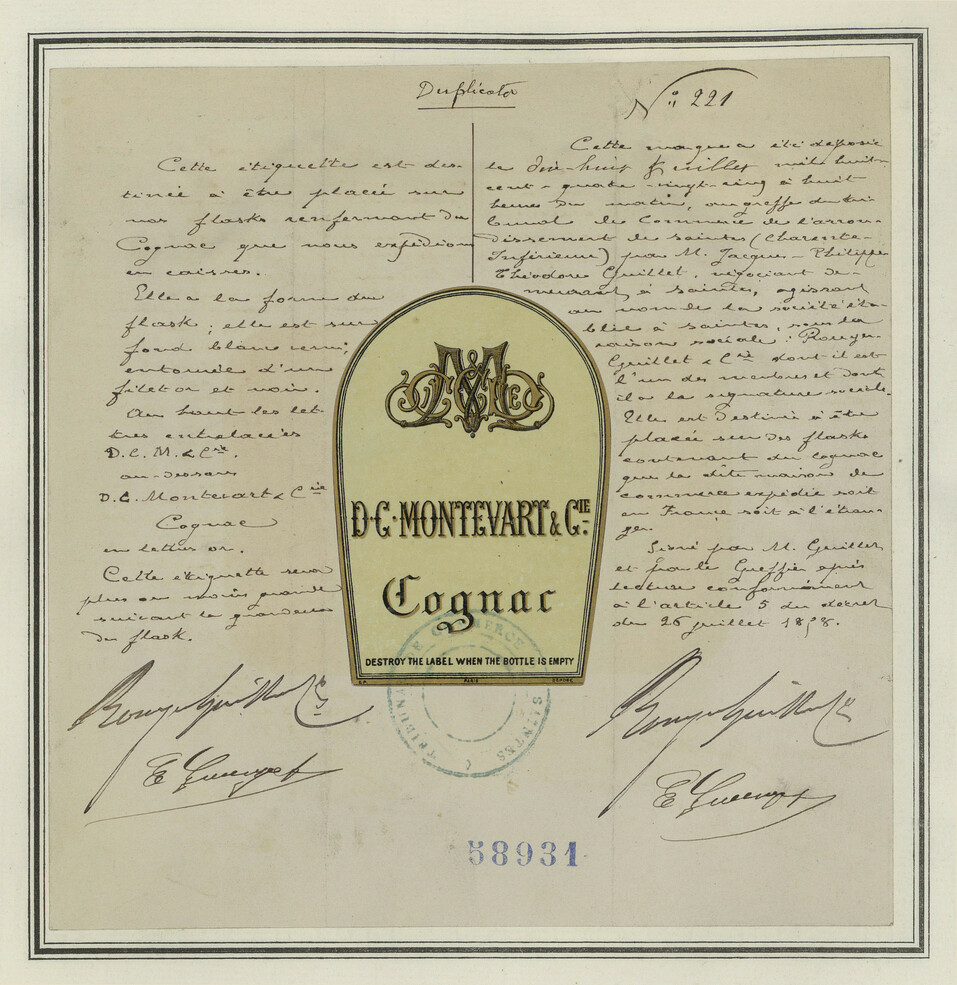 Duplicata
Nº: 221
Cette étiquette est des-
tinée à être placé sur
nos flasks renfermant du
Cognac que nous expédions
en caisses.
Elle a la forme du
flask ; elle est sur
fond blanc verni;
entourée d'un
filet or et noir.
Au haut les let-
tres entrelacées
D. C. M. & Cie.
au-dessous
D. C. Montevart & Cie
Cognac
en lettres or.
Cette étiquette sera
plus ou moins grande
suivant la grandeur
du flask.
Rouyer Guillet & Cie
Cette marque a été déposée
le dix-huit Juillet mil huit-
cent-quatre-vingt-cinq à huit
heures du matin, au greffe du tri-
bunal de Commerce de l'arron-
dissement de Saintes (Charente-
Inférieure) par M. Jacques-Philippe-
Théodore Guillet, négociant de-
meurant à Saintes, agissant
au nom de la société éta-
blie à Saintes, sous la
raison sociale : Rouyer-
Guillet & Cie dont il est
l'un des membres et dont
il a la signature sociale.
Elle est destinée à être
placée sur des flasks
contenant du cognac
que la dite maison de
commerce expédie soit
en France soit à l'étran-
ger.
Signé par M. Guillet
et par le Greffier après
lecture conformément
à l'article 5 du décret
du 26 juillet 1858.
Rouyer Guillet & Cie
D.C. MONTEVART & CIE
Cognac
DESTROY THE LABEL WHEN THE BOTTLE IS EMPTY
PARIS
DÉPOSÉ
TRIBUNAL DE COMMERCE
SAINTES
58931